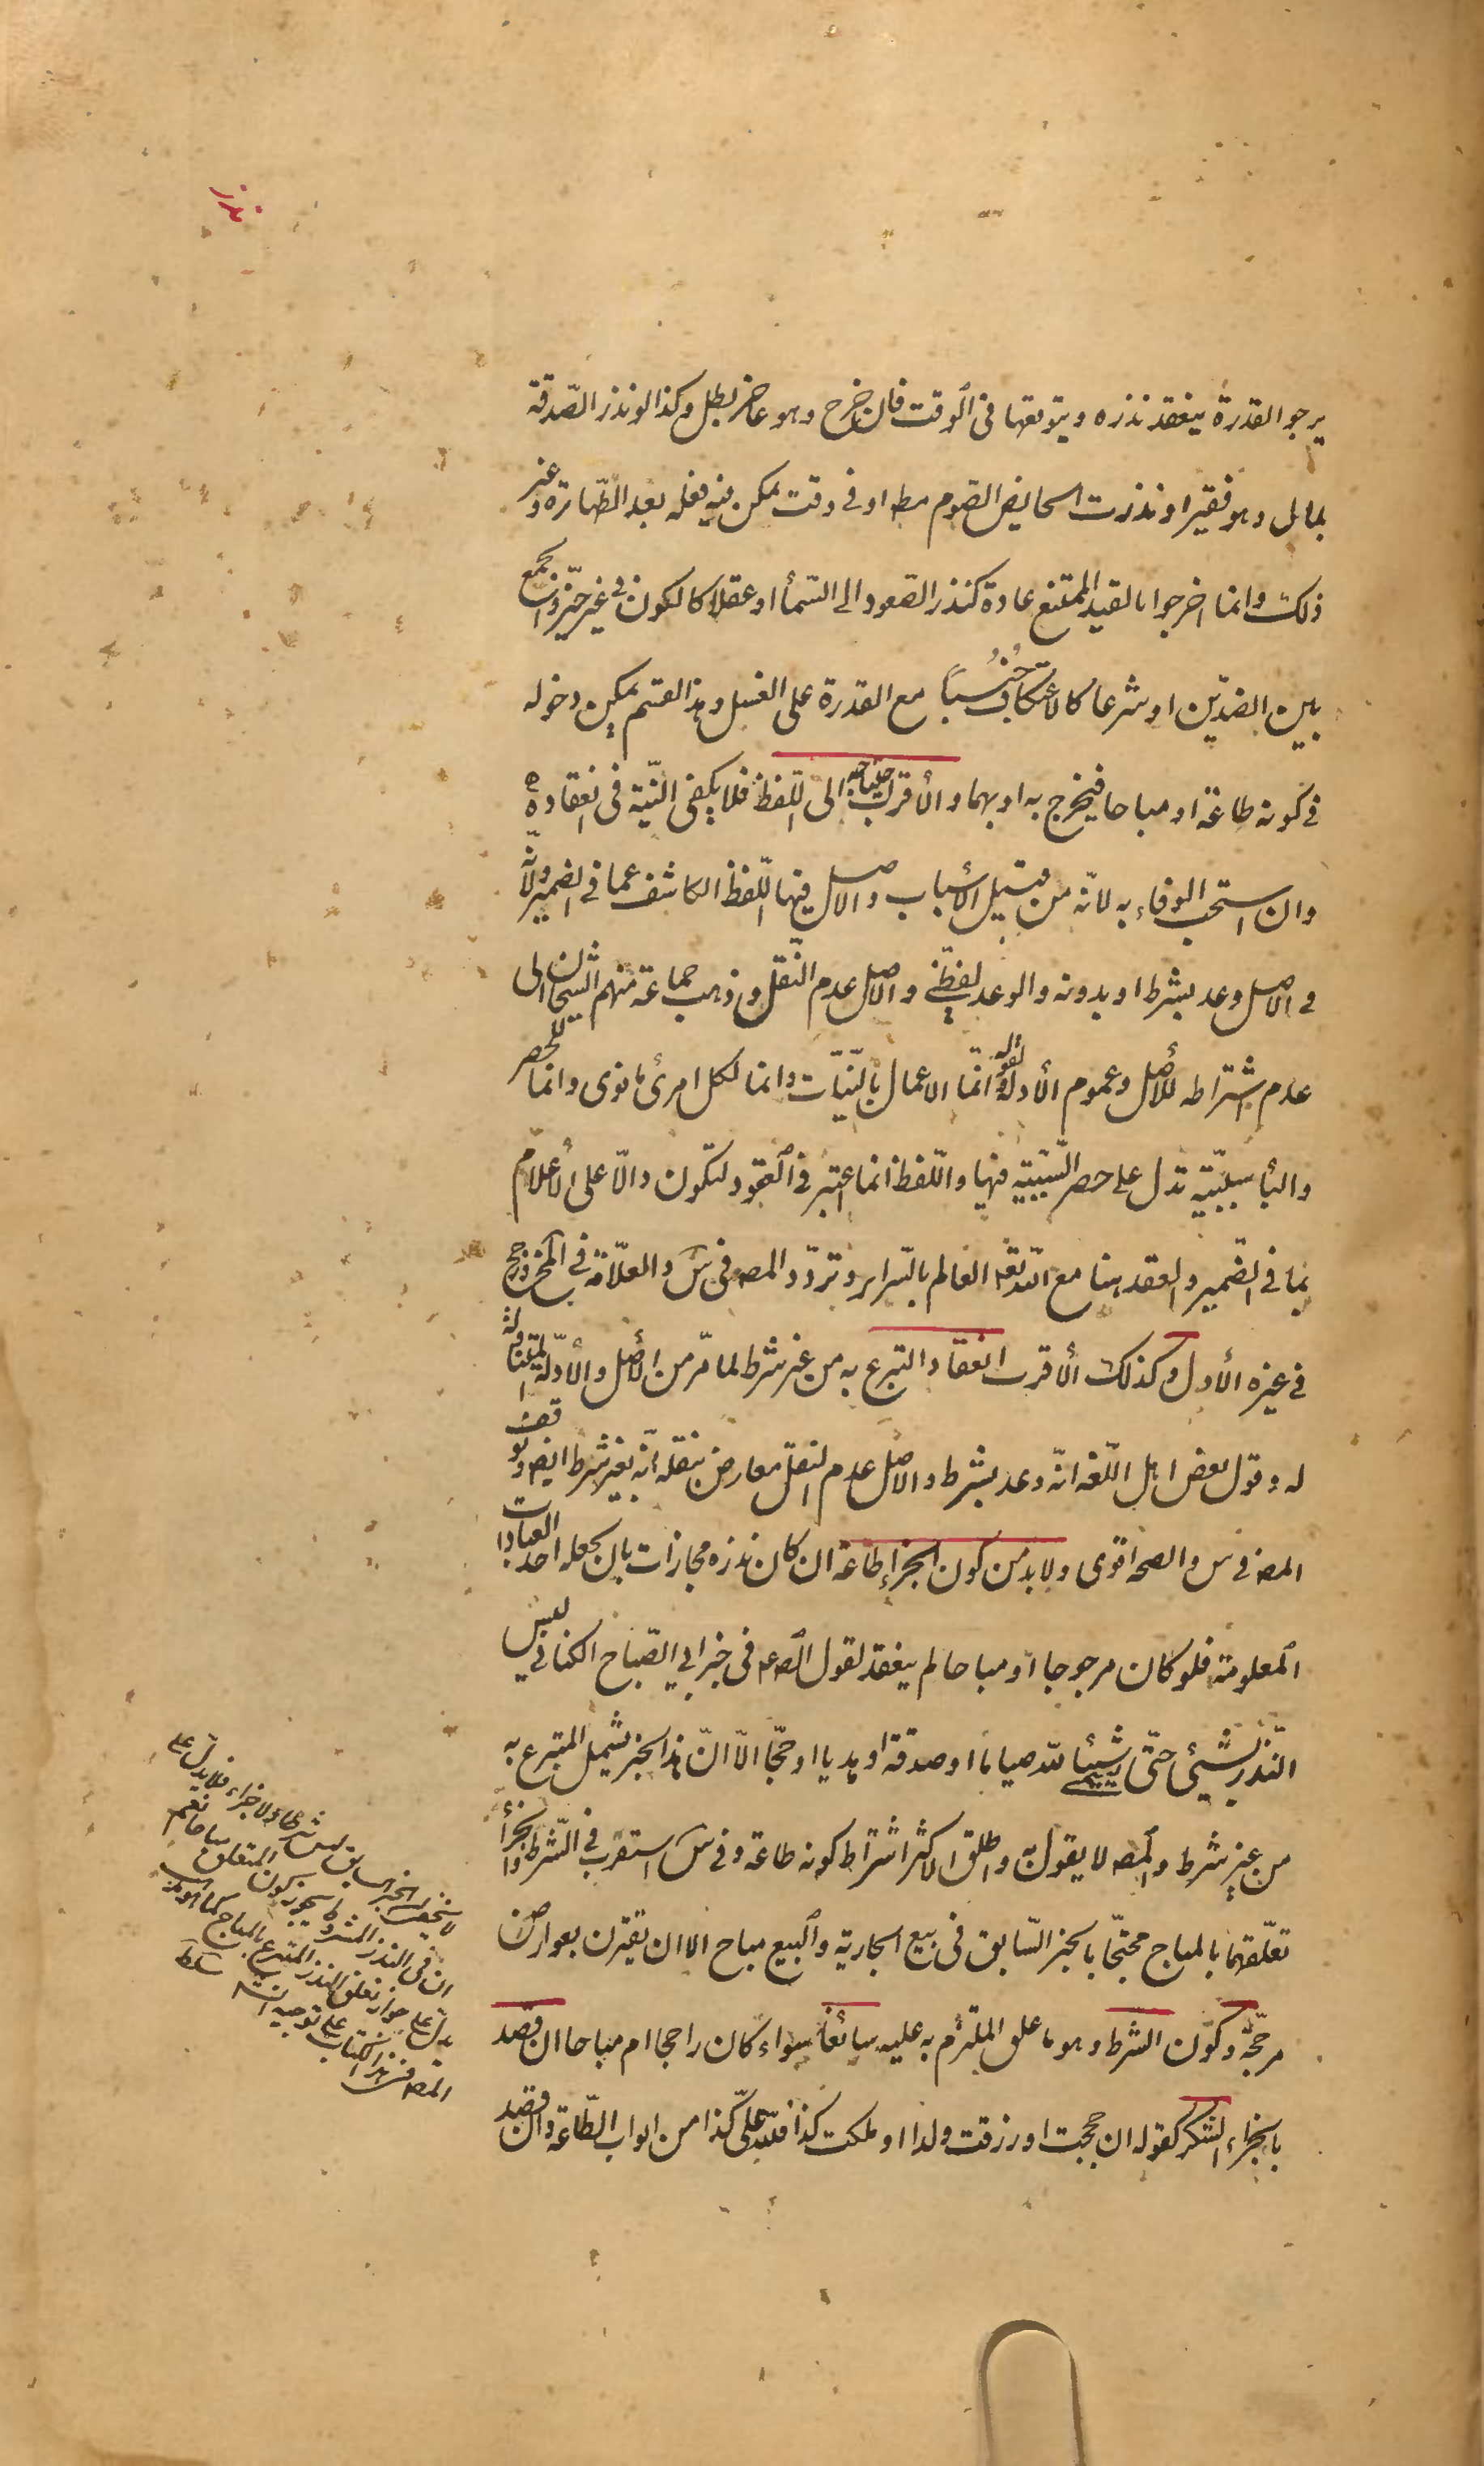 نذر
يرجو القدرة ينعقد نذره ويتوقعها فى الوقت فان خرج وهو عاجز بطل وكذا لو نذر الصّدقة
بمال وهو فقير او نذرت الحايض الصوم مط او فى وقت يمكن فيه فعله بعد الطّهارة وغير
ذلك وانما اخرجوا بالقيد الممتنع عادة كنذر الصّعود الى السّمأ او عقلا كالكون فى غير حيّز والجمع
بين الضدّين او شرعا كالاعتكاف جُنُبًا مع القدرة على الغسل وهذا القسم يمكن دخوله
فى كونه طاعة او مباحا فيخرج به او بهما والأقرب احتياجه الى اللّفظ فلا يكفى النّية فى انعقاده
وان استحب الوفاء به لانّه من قبيل الأسباب والاصل فيها اللّفظ الكاشف عما فى الضمير ولانّه
فى الاصل وعد بشرط او بدونه والوعد لفظىّ والاصل عدم النّقل وذهب جماعة منهم الشيخان الى
عدم اشتراطه للأصل وعموم الأدلة ولقوله انّما الاعمال بالنّيّات وانما لكل امرئ ما نوى وانما للحصر
والبأ سببيّة تدل على حصر السّببيّة فيها واللّفظ انما اعتبر فى العقود لتكون دالّا على الأعلام
بما فى الضّمير والعقد هنا مع اللّه تع العالم بالسّراير وتردّد المصه فى س والعلّامة فى المخ ورجح
فى غيره الأول وكذلك الأقرب انعقاد التبرع به من غير شرط لما مرّ من الأصل والأدلّة المتناولة
له وقول بعض اهل اللّغه انّه وعد بشرط والاصل عدم النقل معارض بنقله انّه بغير شرط ايضا وتوقف
المصه فى س والصحه اقوى ولا بد من كون الجزاء طاعة ان كان نذره مجازات بان يجعله احد العبادات
المعلومة فلو كان مرجوحا او مباحا لم ينعقد لقول الصه ع فى خبر ابي الصّباح الكنانى ليس
النّذر بشئ حتّى يسمّى شيئا للّه صياما او صدقة او هديا او حجّا الّا انّ هذا الخبر يشمل المتبرع به
من غير شرط والمصه لا يقول به واطلق الاكثر اشتراط كونه طاعة وفى س استقرب فى الشّرط والجزأ
تعلّقهما بالمباح محتجّا بالخبر السّابق فى بيع الجارية والبيع مباح الا ان يقترن بعوارض
مرجّحة وكون الشّرط وهو ما علق الملتزم به عليه سائغا سواء كان راجحا ام مباحا ان قصد
بالجزاء الشكر كقوله ان حججت او رزقت ولدا او ملكت كذا فللّه علىّ كذا من ابواب الطّاعة وان قصد
لا يخفى ان الخبر السابق ليس شرطا ولا جزاء فلا يدل على
ان فى النذر المشروط يجوز كون المتعلق مباحا نعم
يدل على جواز تعلق النذر المتبرع بالمباح كما
المصه فى هذا الكتاب على توجيه